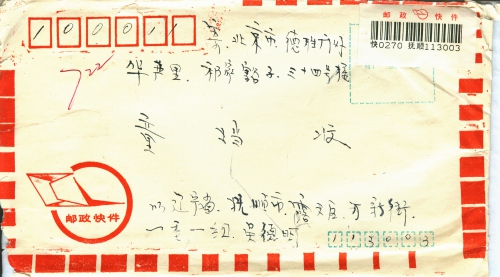 邮政快件
100011
快0270 抚顺113003
寄:北京市 德胜门外
华严里,祁家豁子,三十四号楼
童 收
722
邮政快件
辽宁省,抚顺市,露天区,万新街
一委一组,吴德
113003